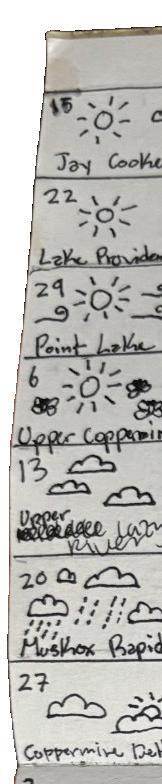 15
Jay Cooke
22
Lake Providen
29
Point Lake
6
Upper Coppermin
13
Upper
River
20
Muskox Rapid
27
Coppermine Del